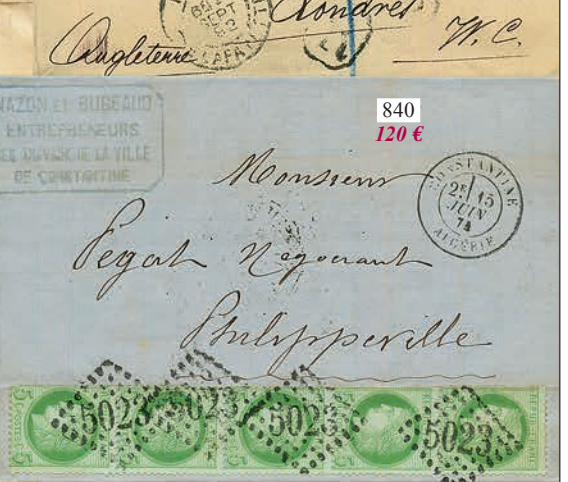 Londres
Angleterre
W. C.
NAZON ET BUGEAUD
ENTREPRENEURS
DE LA VILLE
DE CONSTANTINE
840
120 €
CONSTANTINE
2E 15
JUIN
74
ALGÉRIE
Monsieur
Pegat Negociant
Philippeville
5023 5023 5023 5023
5 5 5 5
POSTES